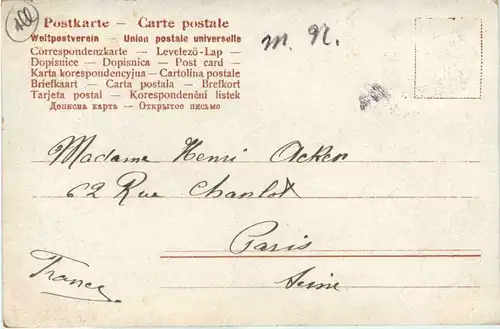 100
Postkarte – Carte postale
Weltpostverein – Union postale universelle
Correspondenzkarte – Levelező-Lap –
Dopisnice – Dopisnica – Post card –
Karta korespondencyjna – Cartolina postale
Briefkaart – Carta postala – Brefkort
Tarjeta postal – Korespondenční lístek
Дописна карта – Открытое письмо
M. N.
Madame Henri Acker
62 Rue Charlot
Paris
Seine
France